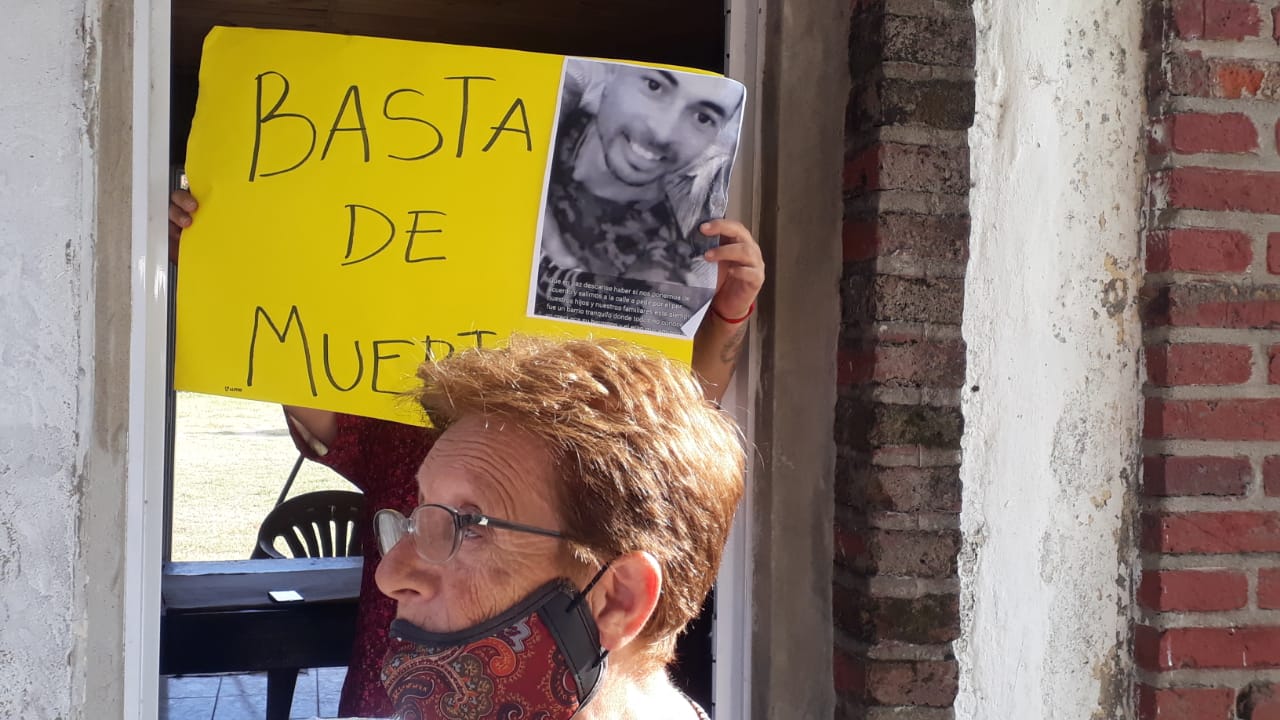 BASTA
DE
MUERT
que en paz descanse haber si nos ponemos de
acuerdo y salimos a la calle a pedir por el por
nuestros hijos y nuestros familiares esto siempre
fue un barrio tranquilo donde todos no conoc